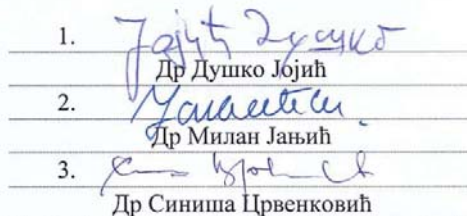 1.
Др Душко Јојић
2.
Др Милан Јањић
3.
Др Синиша Црвенковић